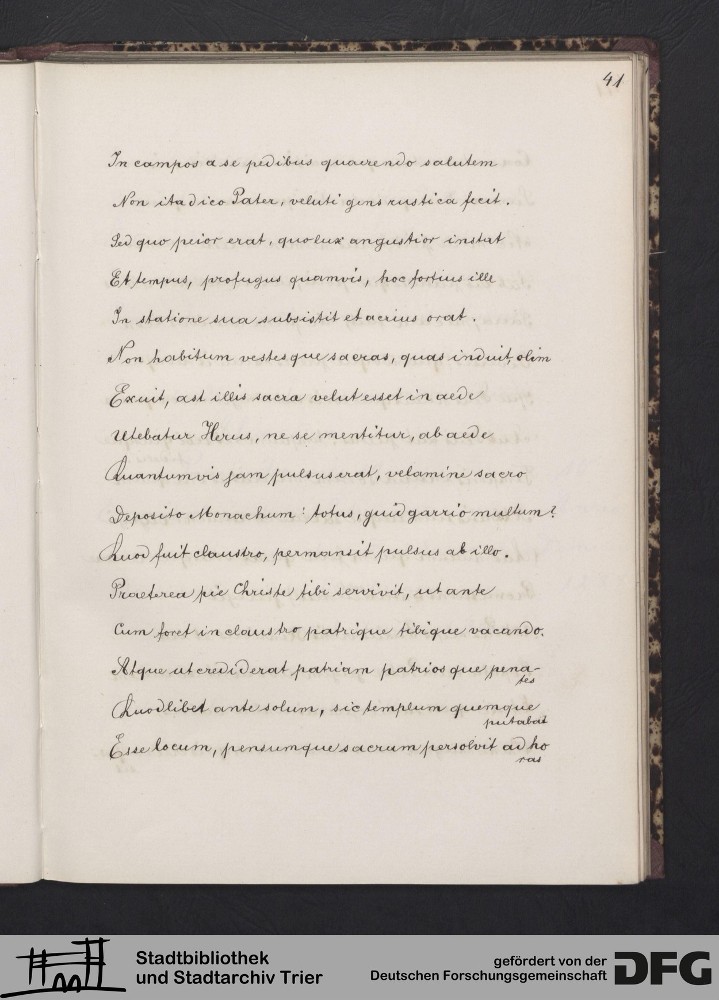 41
In campos a se pedibus quaerendo salutem
Non ita dico Pater, veluti gens rustica fecit.
Sed quo peior erat, quo lux angustior instat
Et tempus, profugus quamvis, hoc fortius ille
In statione sua subsistit et acrius orat.
Non habitum vestesque sacras, quas induit, olim
Exuit, ast illis sacra velut esset in aede
Utebatur Herus, ne se mentitur, ab aede
Quantumvis jam pulsus erat, velamine sacro
Deposito Monachum: totus, quid garrio multum?
Quod fuit claustro, permansit pulsus ab illo.
Praeterea pie Christe tibi servivit, ut ante
Cum foret in claustro patrique tibique vacando.
Atque ut crediderat patriam patriosque pena-
tes
Quodlibet ante solum, sic templum quemque
putabat
Esse locum, pensumque sacrum persolvit ad ho
ras
Stadtbibliothek
und Stadtarchiv Trier
gefördert von der
Deutschen Forschungsgemeinschaft
DFG